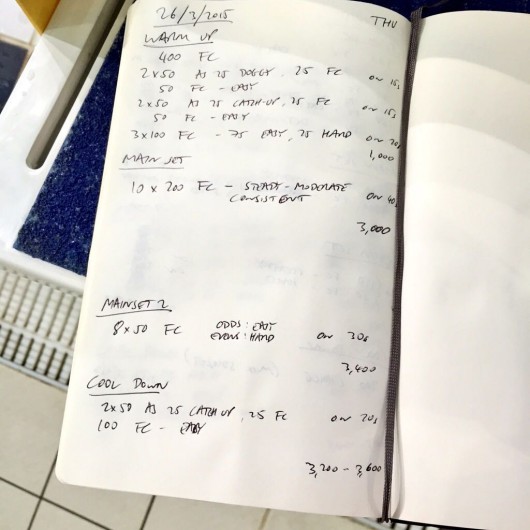 26/3/2015 THU
WARM UP
400 FC
2x50 AS 25 DOGGY, 25 FC on 15s
50 FC - EASY
2x50 AS 25 CATCH-UP, 25 FC on 15s
50 FC - EASY
3x100 FC - 75 EASY, 25 HARD on 20s
1,000
MAIN SET
10 x 200 FC - STEADY-MODERATE on 40s
CONSISTENT
3,000
MAINSET 2
8x50 FC ODDS: EASY on 30s
EVENS: HARD
3,400
COOL DOWN
2x50 AS 25 CATCH UP, 25 FC on 20s
100 FC - EASY
3,200 - 3,600